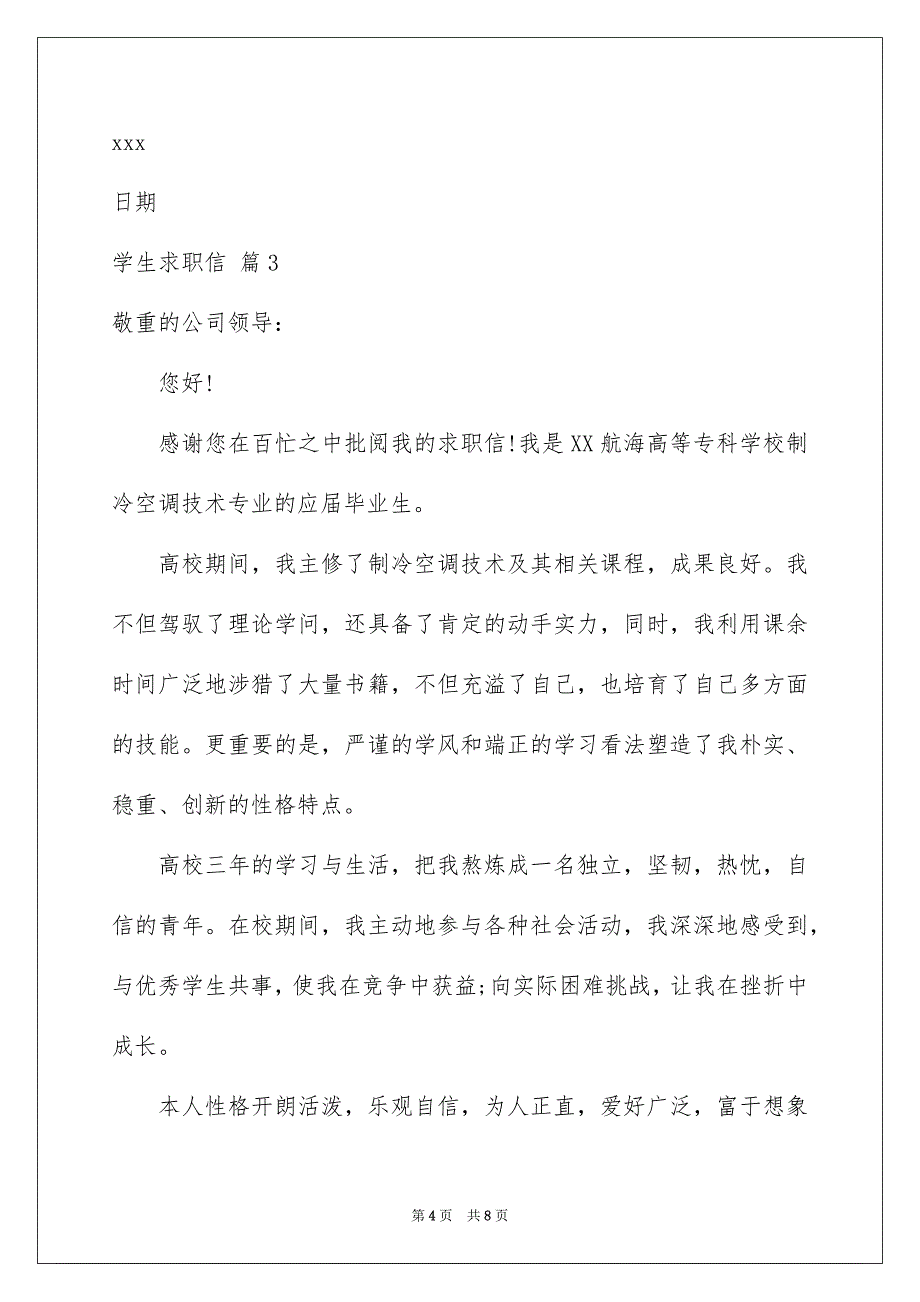 xxx
日期
学生求职信 篇3
敬重的公司领导:
您好!
感谢您在百忙之中批阅我的求职信!我是XX航海高等专科学校制
冷空调技术专业的应届毕业生。
高校期间，我主修了制冷空调技术及其相关课程，成果良好。我
不但驾驭了理论学问，还具备了肯定的动手实力，同时，我利用课余
时间广泛地涉猎了大量书籍，不但充溢了自己，也培育了自己多方面
的技能。更重要的是，严谨的学风和端正的学习看法塑造了我朴实、
稳重、创新的性格特点。
高校三年的学习与生活，把我熬炼成一名独立，坚韧，热忱，自
信的青年。在校期间，我主动地参与各种社会活动，我深深地感受到，
与优秀学生共事，使我在竞争中获益;向实际困难挑战，让我在挫折中
成长。
本人性格开朗活泼，乐观自信，为人正直，爱好广泛，富于想象
第4页 共8页